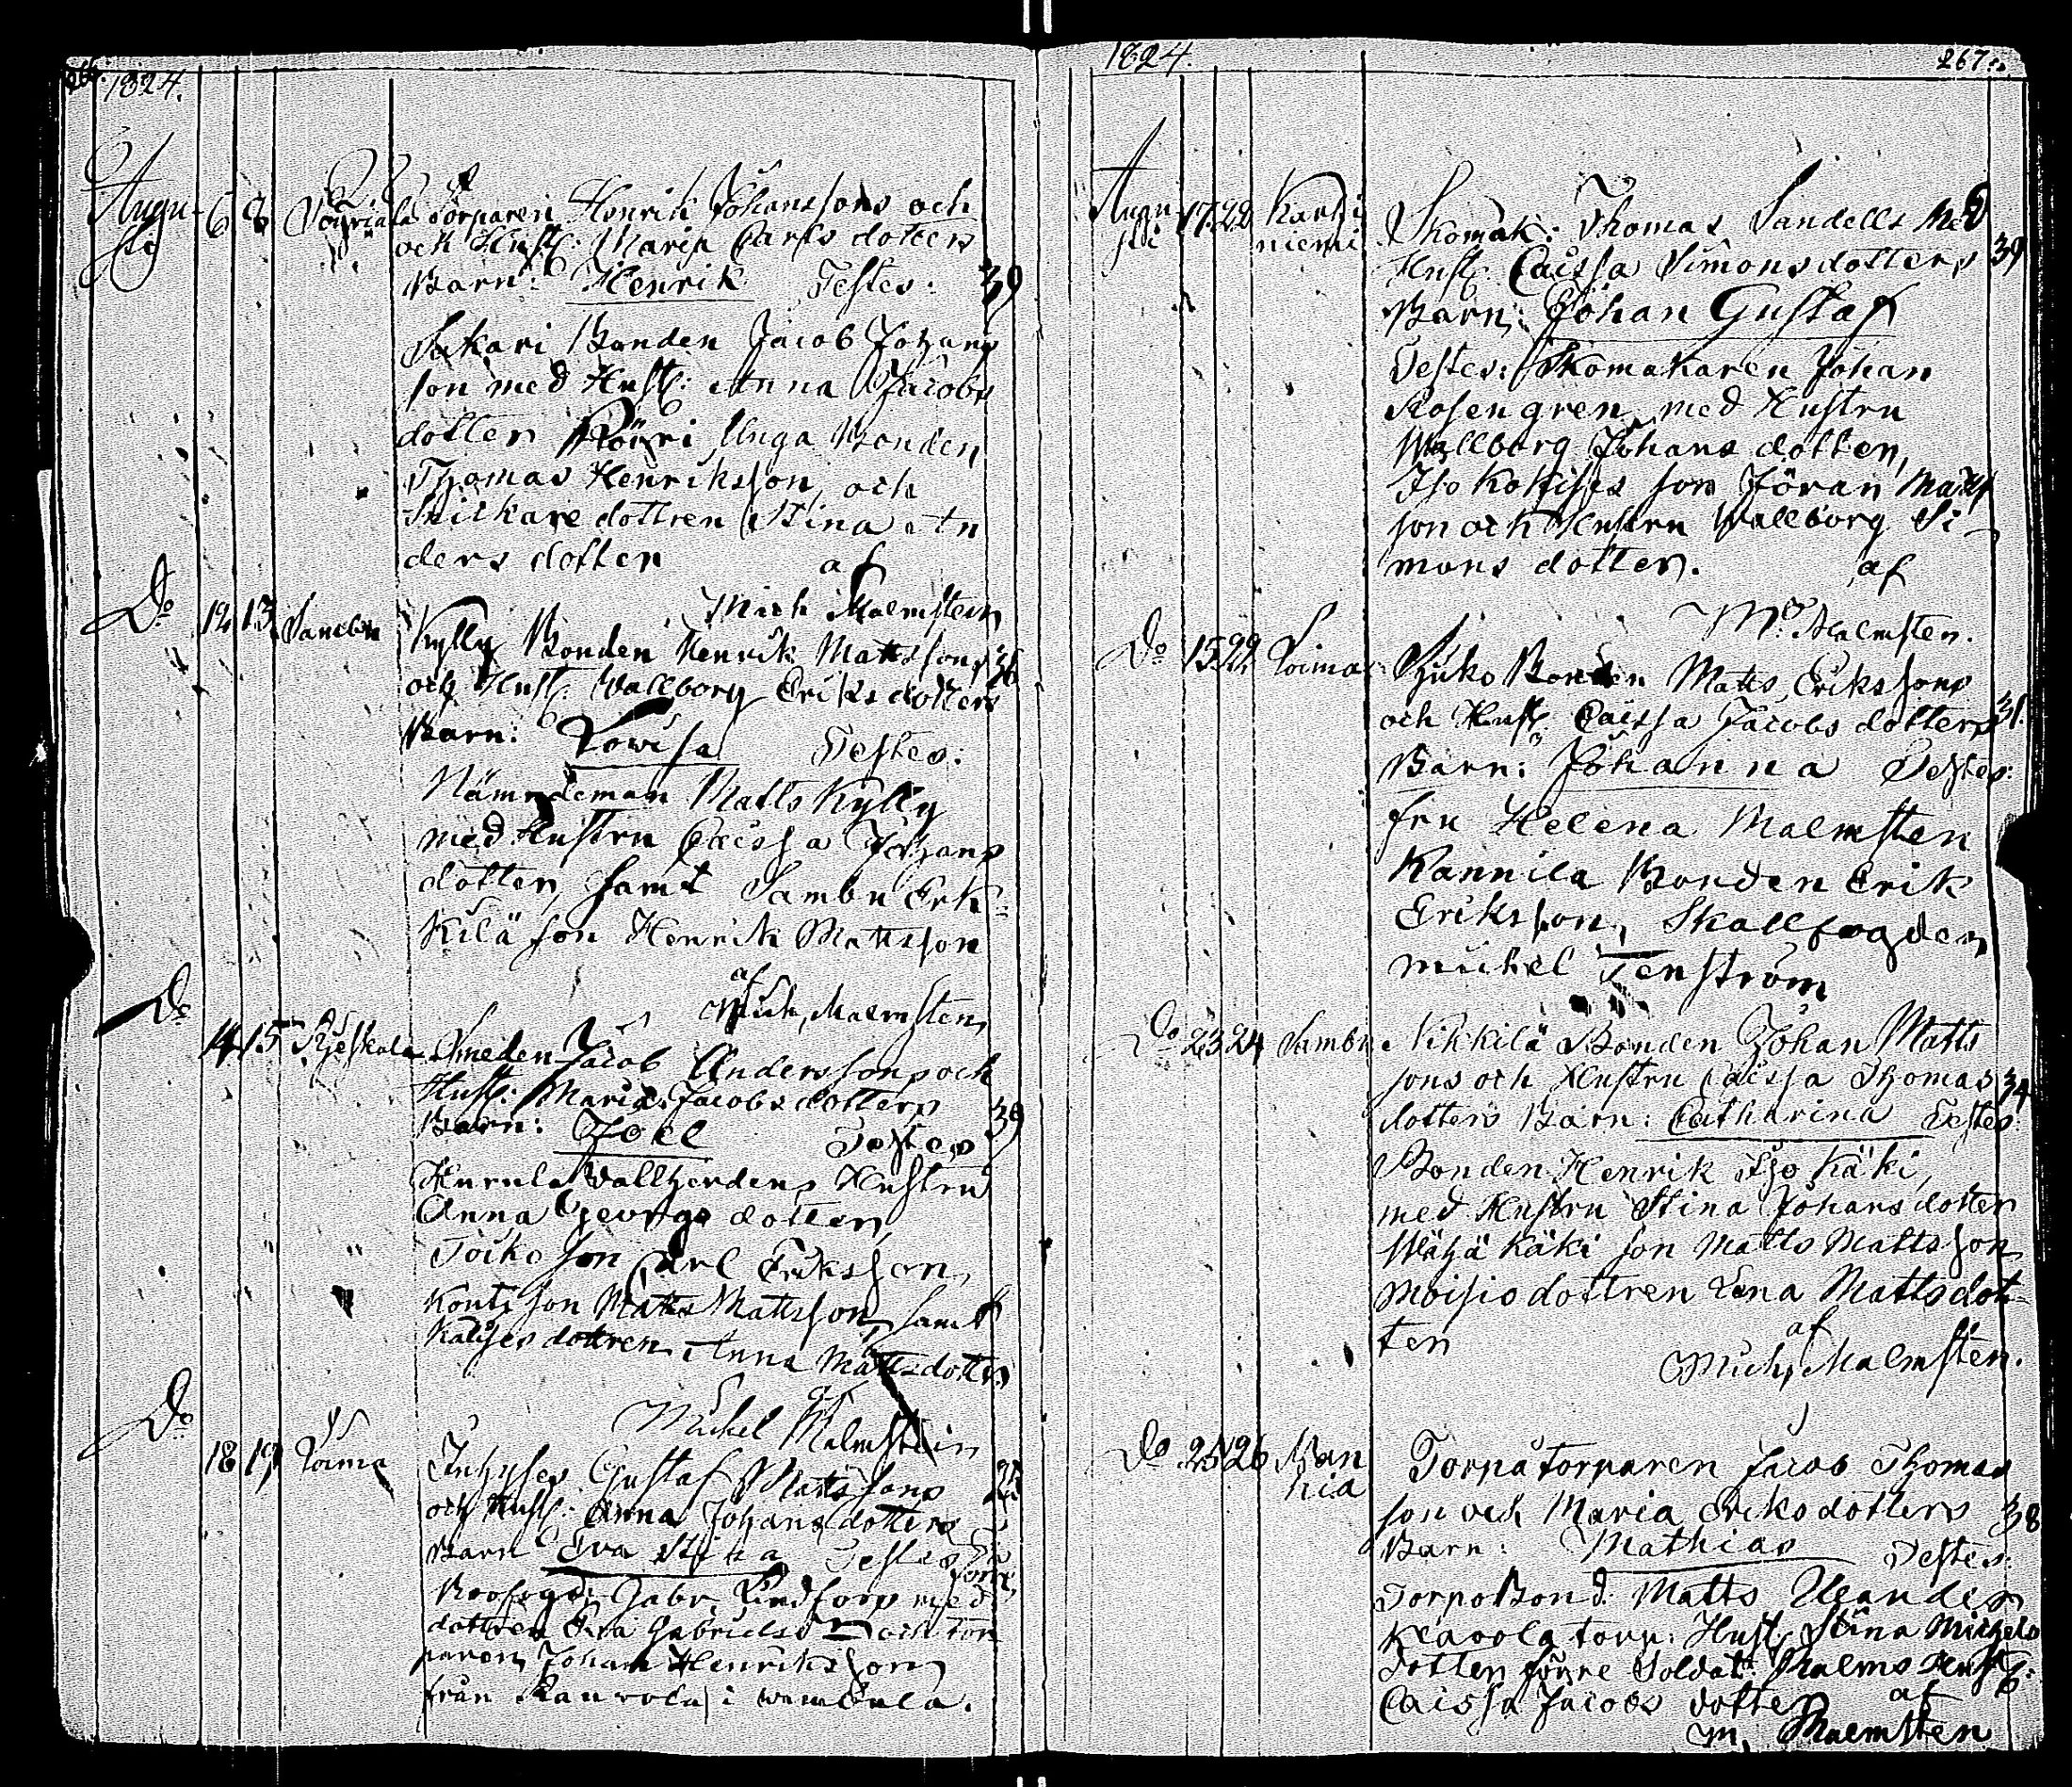 1824.
Augu-
sti 6 8 Torparen Henrik Johanssons och
och Hust: Maria Carls dotters
Barn: Henrik Testes: 39
Sukari Bonden Jacob Johans
son med Hust: Anna Jacobs
dotter Unga Bonden
Thomas Henriksson, och
Snickare dottren Stina An
ders dotter af
Mich Malmsten
Do 12 13 Sambu Kylly Bonden Henrik Mattssons 36
och Hust: Wallborg Eriks dotters
Barn: Lowisa Testes:
Nämndeman Matts Kylly
med Hustru Caissa Johans
dotter, samt Sambu Erk-
kilä son Henrik Mattsson
af
Mich, Malmsten
Do 14 15 Smeden Jacob Anderssons och
Hust: Maria Jacobs dotters 39
Barn: Joel Testes
Hurula Vallherdens Hustru
Anna Georgs dotter,
Toiko son Carl Eriksson,
Kont, son Matts Mattsson, samt
dottren Anna Mattsdotter
af
Mickel Malmstein
Do 18 19 Loima Inhyses Gustaf Mattssons
och Hust: Anna Johans dotters
Barn Eva Stina Testes
Gabr. Lindfors med
dottren Eva Gabriels och Tor
paren, Johan Henriksson
från i
1824. 267.
Augu
sti 17. 22 Karhi
niemi Skomak: Thomas Sandells med
Hust: Caissa Simons dotters 39
Barn: Johan Gustaf
Testes: Skomakaren Johan
Rosengren med Hustru
Wallborg Johans dotter,
Iso son Jöran Matts
son och Hustru Wallborg Si-
mons dotter. af
M: Malmsten.
Do 15 22 Loima Bonden Matts Erikssons
och Hust: Caissa Jacobs dotters 31.
Barn: Johanna Testes:
fru Helena Malmsten
Kannila Bonden Erik
Eriksson, Skallfogden
Michel Tenström
Do 23 24 Sambu Nikkilä Bonden Johan Matts
sons och Hustru Caissa Thomas 34
dotters Barn: Catharina Testes:
Bonden Henrik Iso Käki,
med Hustru Stina Johans dotter
Wähä Käki son Matts Mattsson
Moisio dottren Lena Mattsdot-
ter af
Mich, Malmsten.
Do 25 26 Ban
nia Torpa torparen Jacob Thomas
son och Maria Eriks dotters 38
Barn: Mathias Testes:
Torpo Bond: Matts
Klaavola torp: Hust, Stina Michels
dotter förre Soldat: Malms Hust:
Caissa Jacobs dotter af
M, Malmsten